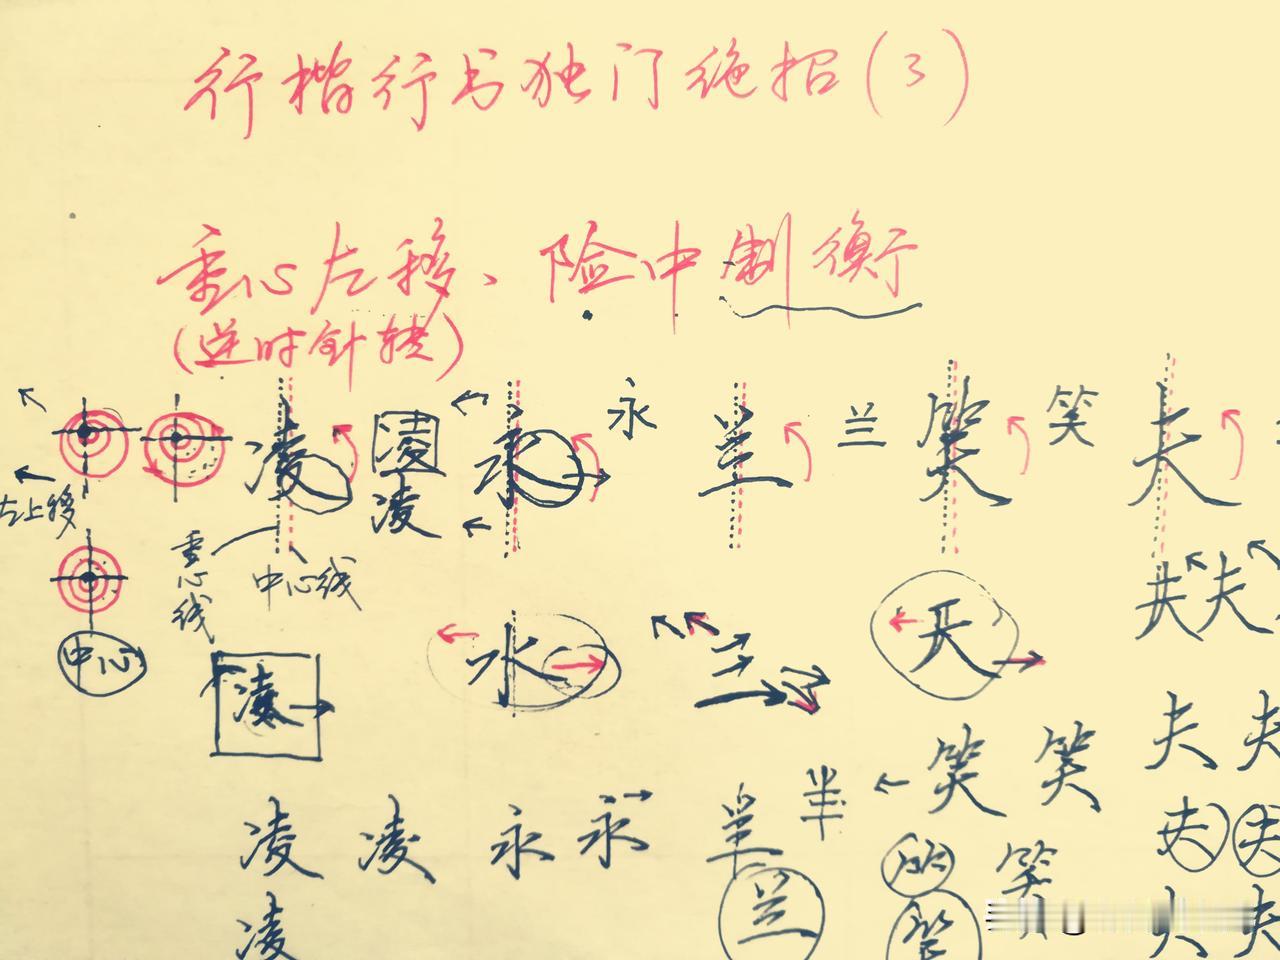 行楷行书独门绝招(3)
重心左移、险中制衡
(逆时针转)
凌 凌 永 永 兰 兰 笑 笑 夫
凌
左上移
重心线
中心线
夫 夫
中心
凌 水 兰 天
夫 夫
笑 笑
凌 凌 永 永 羊 羊
夫 夫
兰 笑
凌 夫 夫